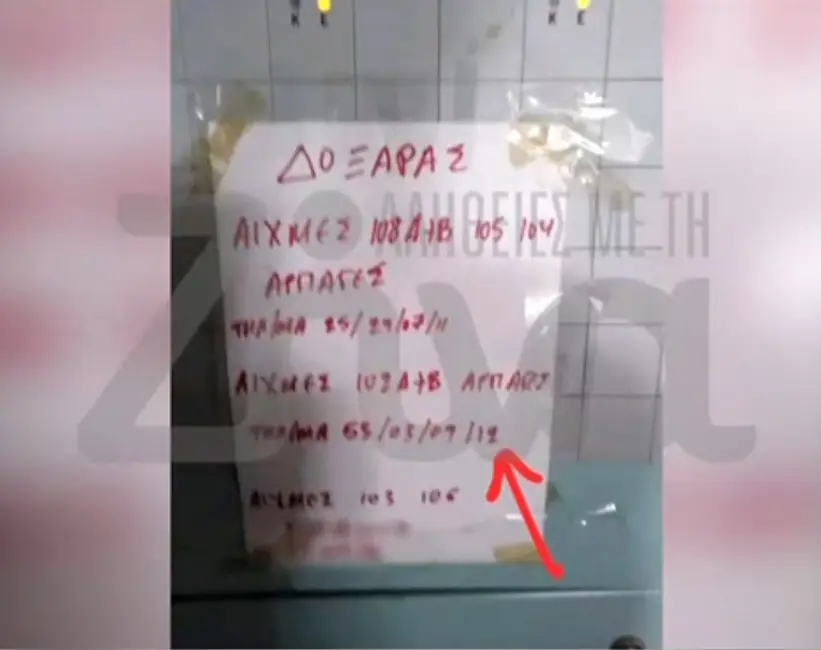 Κ Ε Κ Ε
ΔΟΞΑΡΑΣ
ΑΙΧΜΕΣ 108 Δ+Β 105 /04
ΑΡΠΑΓΕΣ
ΤΗΛ/ΜΑ 25/29/07/11
ΑΙΧΜΕΣ 102 Δ+Β ΑΡΠΑΓΕΣ
ΤΗΛ/ΜΑ 63/03/07/12
ΑΙΧΜΕΣ 103 106
Ζίνα
ΑΛΗΘΕΙΕΣ ΜΕ ΤΗ